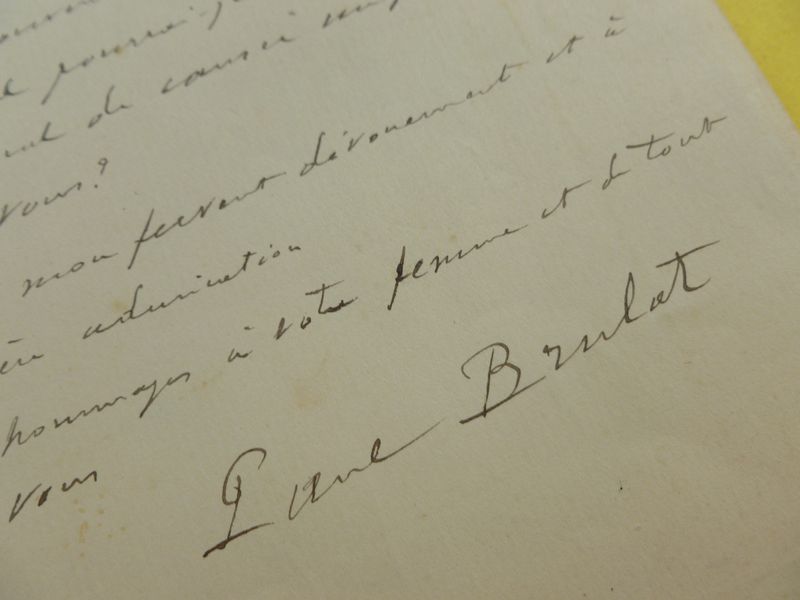 pourrai-je
de causer
vous?
mon fervent dévouement et à
admiration
hommages à votre femme et à tout
vous
Paul Brulat